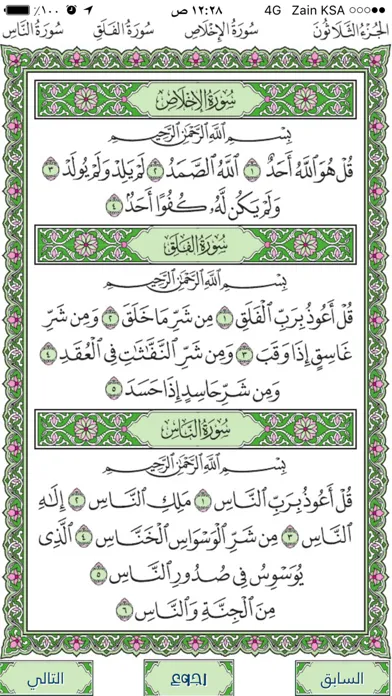 ٪١٠٠ ١٢:٢٨ ص 4G Zain KSA
الجُزْءُ الثَّلَاثُونَ سُورَةُ الإِخْلَاصِ سُورَةُ الفَلَقِ سُورَةُ النَّاسِ
سُورَةُ الإِخْلَاصِ
بِسْمِ ٱللَّهِ ٱلرَّحْمَٰنِ ٱلرَّحِيمِ
قُلْ هُوَ ٱللَّهُ أَحَدٌ ١ ٱللَّهُ ٱلصَّمَدُ ٢ لَمْ يَلِدْ وَلَمْ يُولَدْ ٣
وَلَمْ يَكُن لَّهُۥ كُفُوًا أَحَدٌۢ ٤
سُورَةُ الفَلَقِ
بِسْمِ ٱللَّهِ ٱلرَّحْمَٰنِ ٱلرَّحِيمِ
قُلْ أَعُوذُ بِرَبِّ ٱلْفَلَقِ ١ مِن شَرِّ مَا خَلَقَ ٢ وَمِن شَرِّ
غَاسِقٍ إِذَا وَقَبَ ٣ وَمِن شَرِّ ٱلنَّفَّٰثَٰتِ فِى ٱلْعُقَدِ ٤
وَمِن شَرِّ حَاسِدٍ إِذَا حَسَدَ ٥
سُورَةُ النَّاسِ
بِسْمِ ٱللَّهِ ٱلرَّحْمَٰنِ ٱلرَّحِيمِ
قُلْ أَعُوذُ بِرَبِّ ٱلنَّاسِ ١ مَلِكِ ٱلنَّاسِ ٢ إِلَٰهِ
ٱلنَّاسِ ٣ مِن شَرِّ ٱلْوَسْوَاسِ ٱلْخَنَّاسِ ٤ ٱلَّذِى
يُوَسْوِسُ فِى صُدُورِ ٱلنَّاسِ ٥
مِنَ ٱلْجِنَّةِ وَٱلنَّاسِ ٦
السابق رجوع التالي